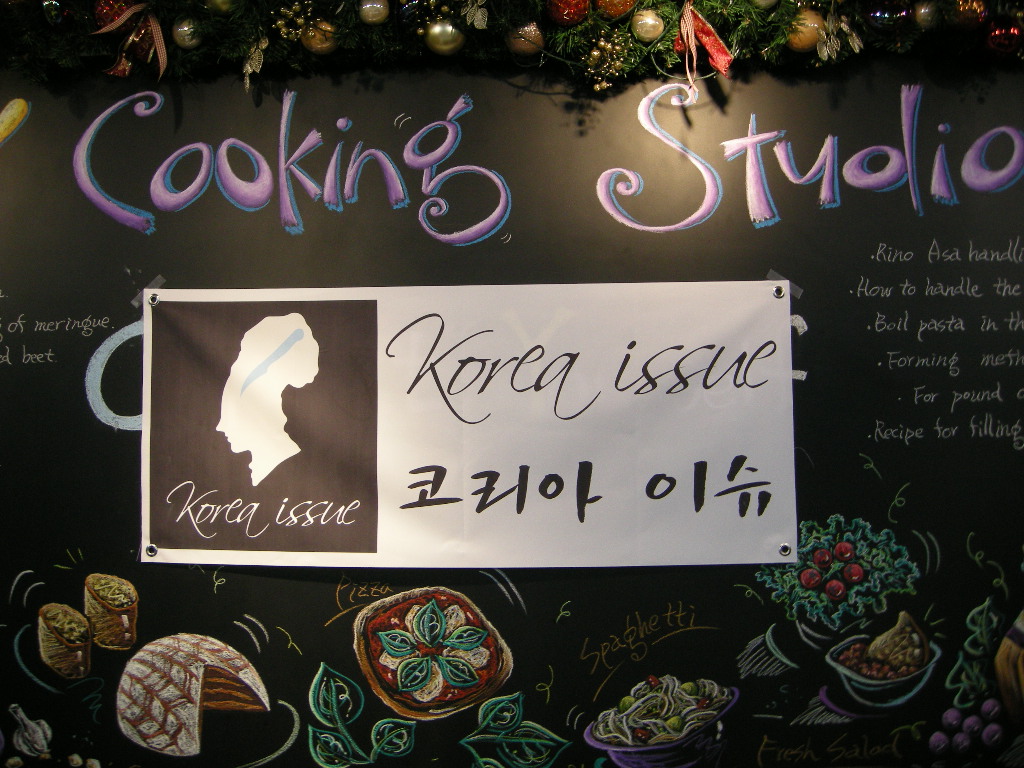 Cooking Studio
of meringue.
beet.
Korea issue
Korea issue
코리아 이슈
.Rino Asa
.How to handle the
.Boil pasta in
.Forming
. For pound
.Recipe for filling
Pizza
Spaghetti
Fresh Salad